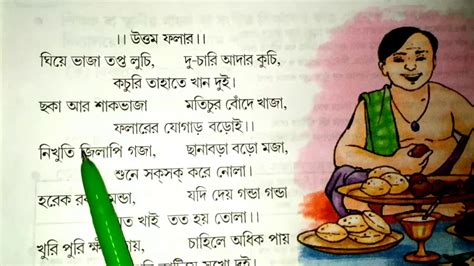 ।। উত্তম ফলার ।।
ঘিয়ে ভাজা তপ্ত লুচি, দু-চারি আদার কুচি,
কচুরি তাহাতে খান দুই।
ছকা আর শাকভাজা মতিচুর বোঁদে খাজা,
ফলারের যোগাড় বড়োই।।
নিখুতি জিলাপি গজা, ছানাবড়া বড়ো মজা,
শুনে সক্‌সক্‌ করে নোলা।
হরেক মন্ডা, যদি দেয় গন্ডা গন্ডা
খাই তত হয় তোলা।।
খুরি পুরি চাহিলে অধিক পায়